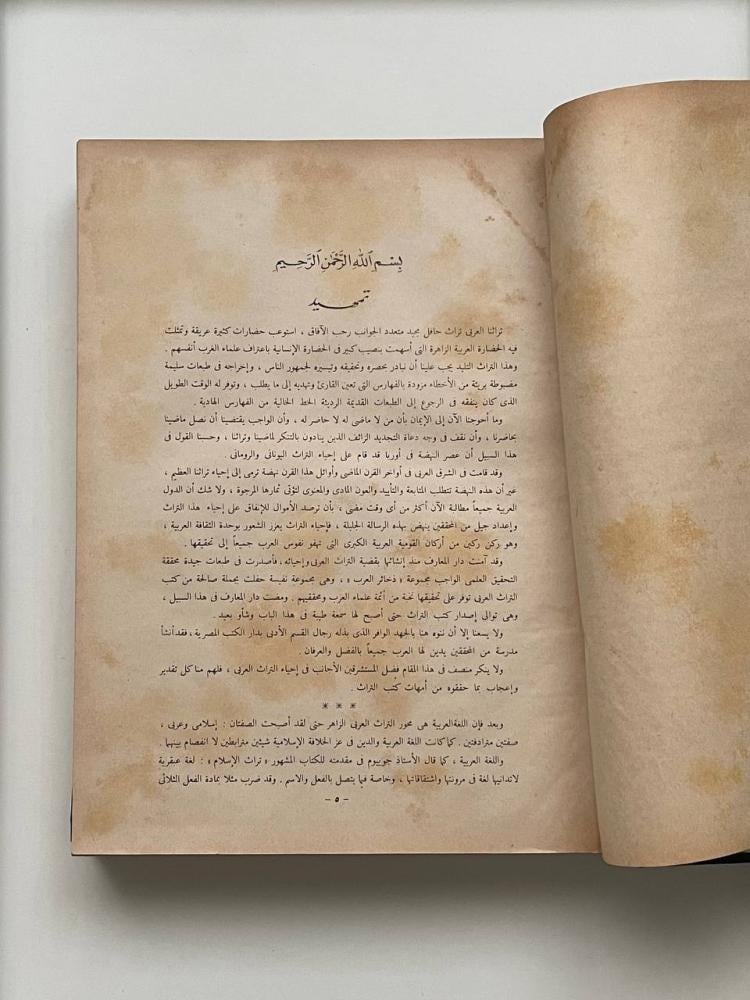 بِسْمِ ٱللهِ ٱلرَّحْمٰنِ ٱلرَّحِيمِ
تمهيد
تراثنا العربى تراث حافل مجيد متعدد الجوانب رحب الآفاق ، استوعب حضارات كثيرة عريقة وتمثلت
فيه الحضارة العربية الزاهرة التى أسهمت بنصيب كبير فى الحضارة الإنسانية باعتراف علماء الغرب أنفسهم .
وهذا التراث التليد يجب علينا أن نبادر بحصره وتحقيقه وتيسيره لجمهور الناس ، وإخراجه فى طبعات سليمة
مضبوطة بريئة من الأخطاء مزودة بالفهارس التى تعين القارئ وتهديه إلى ما يطلب ، وتوفر له الوقت الطويل
الذى كان ينفقه فى الرجوع إلى الطبعات القديمة الرديئة الخط الخالية من الفهارس الهادية .
وما أحوجنا الآن إلى الإيمان بأن من لا ماضى له لا حاضر له ، وأن الواجب يقتضينا أن نصل ماضينا
بحاضرنا ، وأن نقف فى وجه دعاة التجديد الزائف الذين ينادون بالتنكر لماضينا وتراثنا ، وحسبنا القول فى
هذا السبيل أن عصر النهضة فى أوربا قد قام على إحياء التراث اليونانى والرومانى .
وقد قامت فى الشرق العربى فى أواخر القرن الماضى وأوائل هذا القرن نهضة ترمى إلى إحياء تراثنا العظيم ،
غير أن هذه النهضة تتطلب المتابعة والتأييد والعون المادى والمعنوى لتؤتى ثمارها المرجوة ، ولا شك أن الدول
العربية جميعاً مطالبة الآن أكثر من أى وقت مضى ، بأن ترصد الأموال للإنفاق على إحياء هذا التراث
وإعداد جيل من المحققين ينهض بهذه الرسالة الجليلة ، فإحياء التراث يعزز الشعور بوحدة الثقافة العربية ،
وهو ركن ركين من أركان القومية العربية الكبرى التى تهفو نفوس العرب جميعاً إلى تحقيقها .
وقد آمنت دار المعارف منذ إنشائها بقضية التراث العربى وإحيائه ، فأصدرت فى طبعات جيدة محققة
التحقيق العلمى الواجب مجموعة « ذخائر العرب » ، وهى مجموعة نفيسة حفلت بجملة صالحة من كتب
التراث العربى توفر على تحقيقها نخبة من أئمة علماء العرب ومحققيهم . ومضت دار المعارف فى هذا السبيل ،
وهى توالى إصدار كتب التراث حتى أصبح لها سمعة طيبة فى هذا الباب وشأو بعيد .
ولا يسعنا إلا أن ننوه هنا بالجهد الوافر الذى بذله رجال القسم الأدبى بدار الكتب المصرية ، فقد أنشأ
مدرسة من المحققين يدين لها العرب جميعاً بالفضل والعرفان .
ولا ينكر منصف فى هذا المقام فضل المستشرقين الأجانب فى إحياء التراث العربى ، فلهم منا كل تقدير
وإعجاب بما حققوه من أمهات كتب التراث .
* * *
وبعد فإن اللغة العربية هى محور التراث العربى الزاهر حتى لقد أصبحت الصفتان : إسلامى وعربى ،
صفتين مترادفتين . كما كانت اللغة العربية والدين فى عز الخلافة الإسلامية شيئين مترابطين لا انفصام بينهما .
واللغة العربية ، كما قال الأستاذ جويوم فى مقدمته للكتاب المشهور « تراث الإسلام » : لغة عبقرية
لا تدانيها لغة فى مرونتها واشتقاقاتها ، وخاصة فيما يتصل بالفعل والاسم . وقد ضرب مثلا بمادة الفعل الثلاثى
– ٥ –